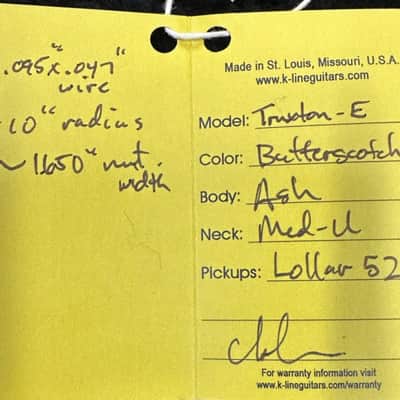 .095" x .047"
wire
10" radius
~1.650" nut
width
Made in St. Louis, Missouri, U.S.A.
www.k-lineguitars.com
Model: Truxton-E
Color: Butterscotch
Body: Ash
Neck: Med-U
Pickups: Lollar 52
For warranty information visit
www.k-lineguitars.com/warranty